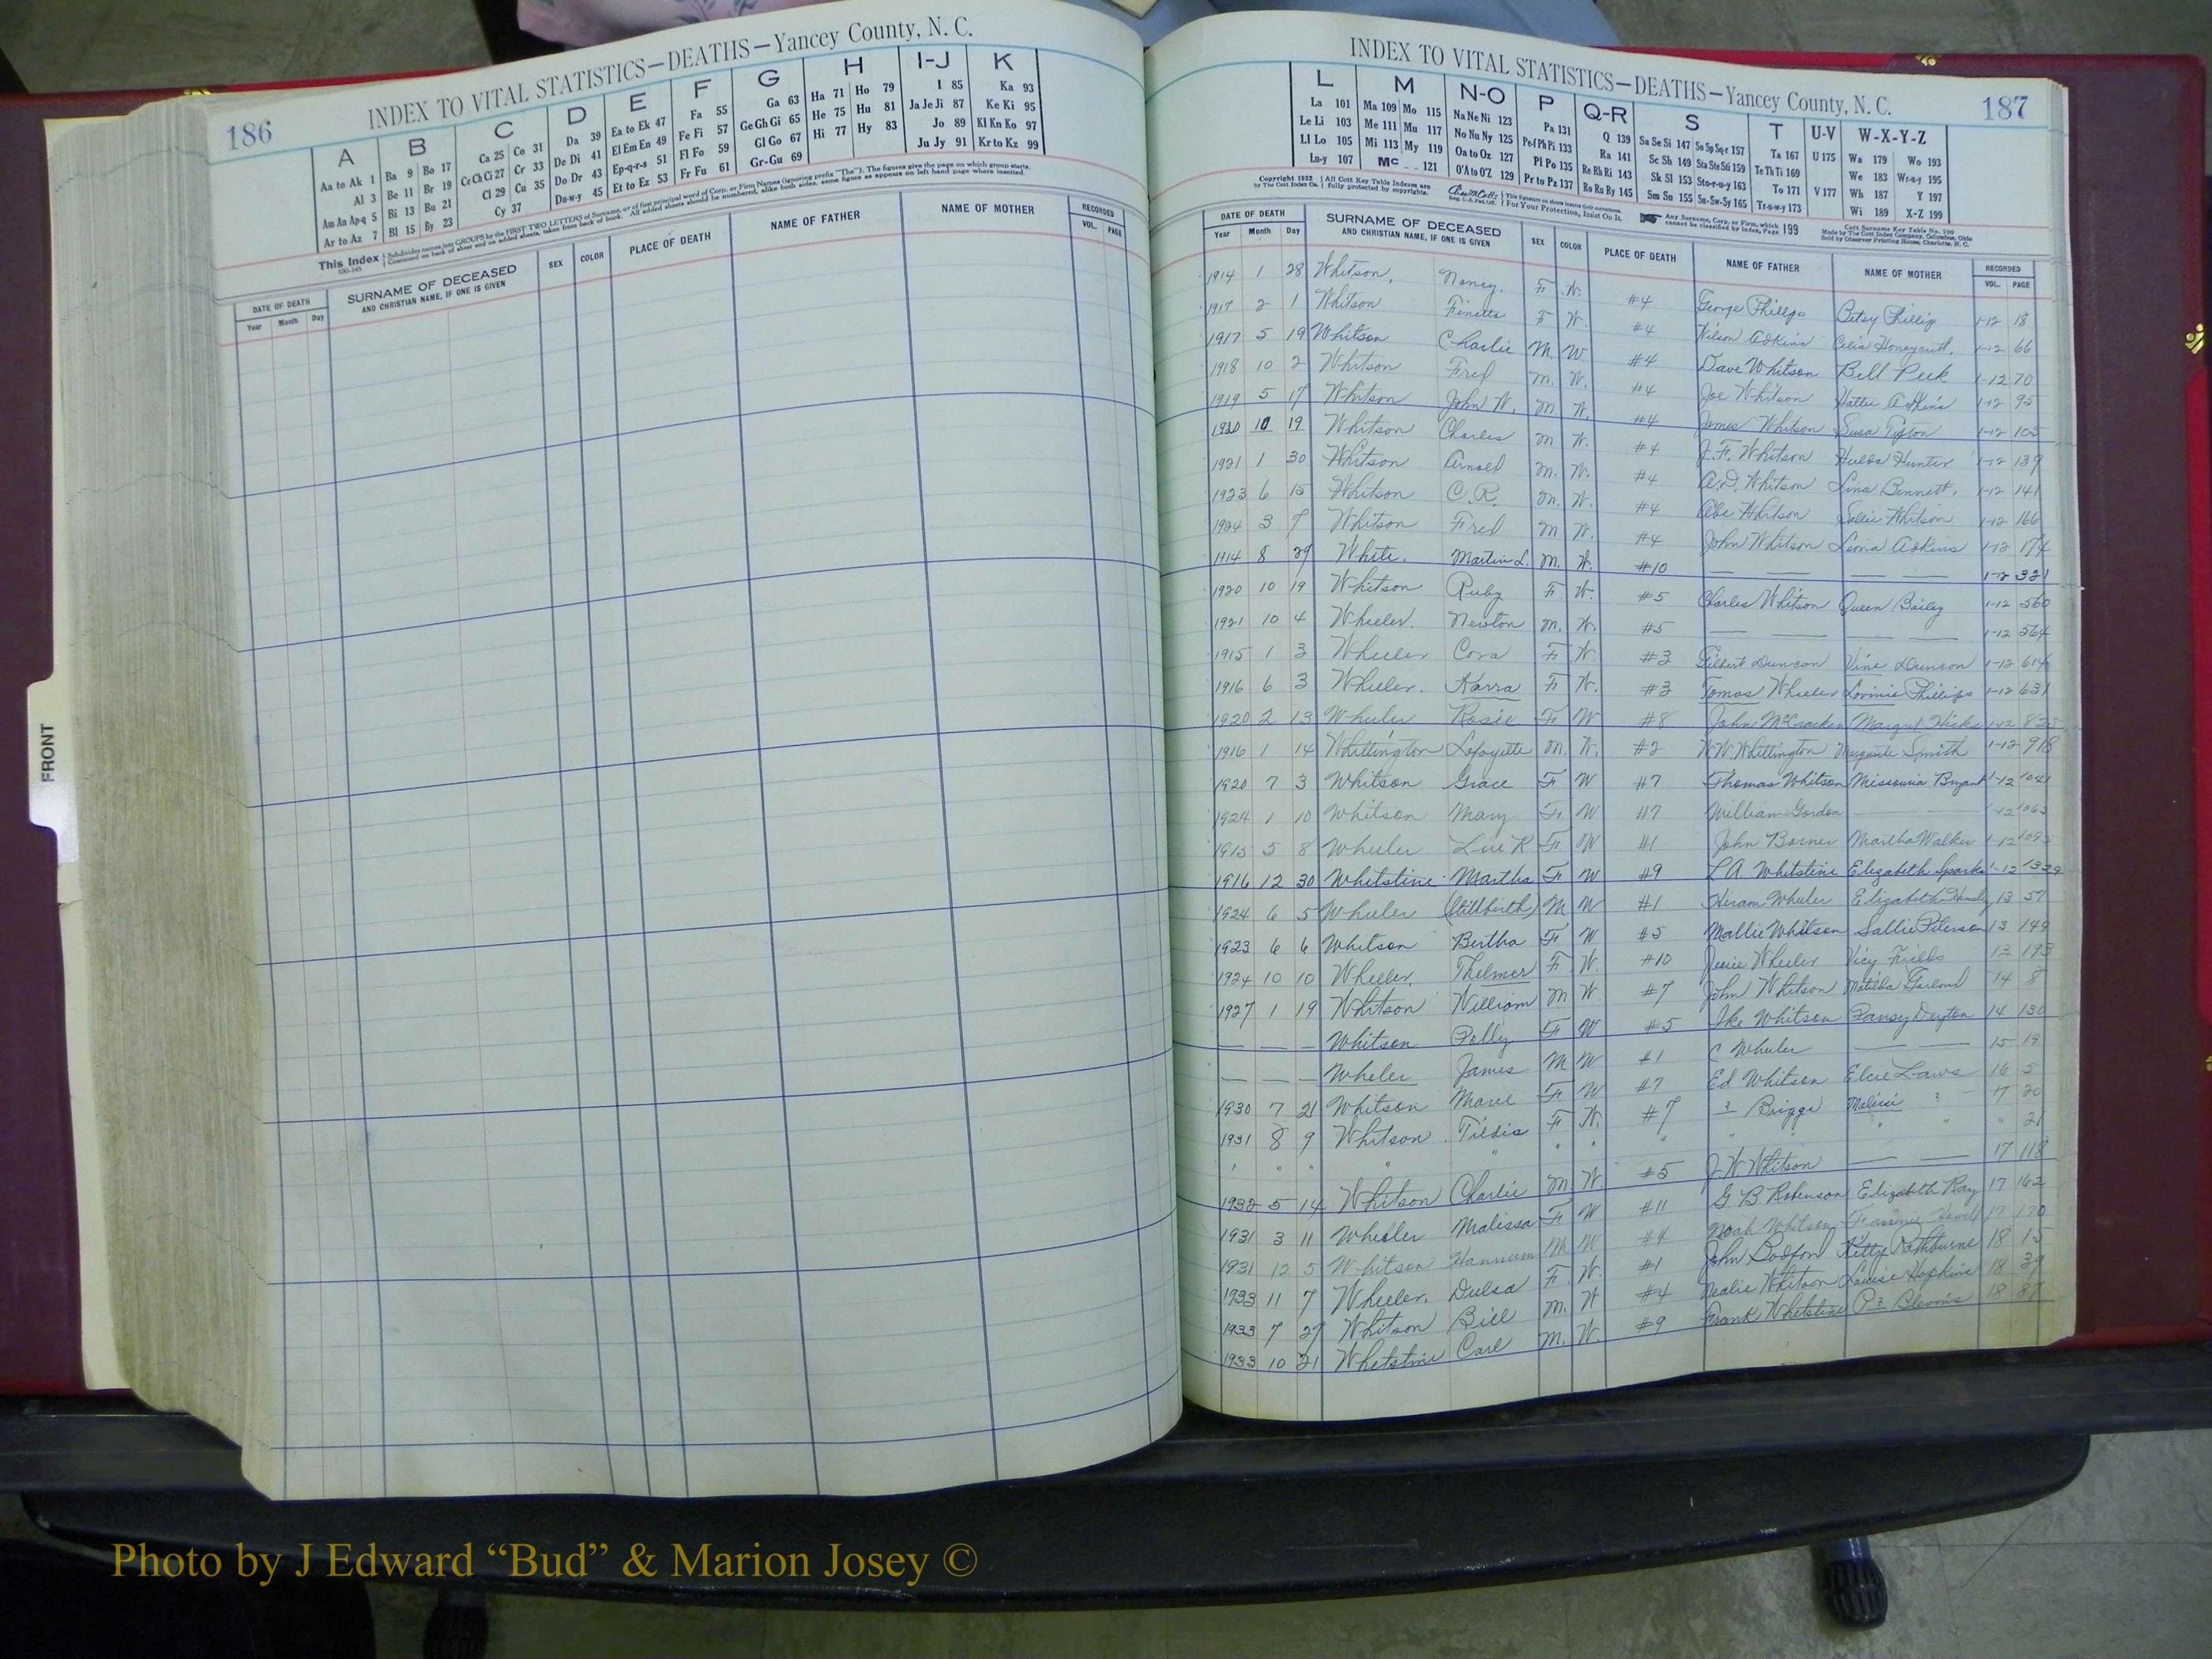 186
INDEX TO VITAL STATISTICS—DEATHS—Yancey County, N. C.
A B C D E F G H I-J K
Aa to Ak 1 Ba 9 Bo 17 Ca 25 Co 31 Da 39 Ea to Ek 47 Fa 55 Ga 63 Ha 71 Ho 79 I 85 Ka 93
Al 3 Be 11 Br 19 Ce Ch Ci 27 Cr 33 De Di 41 El Em En 49 Fe Fi 57 Ge Gh Gi 65 He 75 Hu 81 Ja Je Ji 87 Ke Ki 95
Am An Ap-q 5 Bi 13 Bu 21 Cl 29 Cu 35 Do Dr 43 Ep-q-r-s 51 Fl Fo 59 Gl Go 67 Hi 77 Hy 83 Jo 89 Kl Kn Ko 97
Ar to Az 7 Bl 15 By 23 Cy 37 Du-w-y 45 Et to Ez 53 Fr Fu 61 Gr-Gu 69 Ju Jy 91 Kr to Kz 99
This Index
DATE OF DEATH SURNAME OF DECEASED SEX COLOR PLACE OF DEATH NAME OF FATHER NAME OF MOTHER RECORDED
Year Month Day AND CHRISTIAN NAME, IF ONE IS GIVEN VOL. PAGE
INDEX TO VITAL STATISTICS—DEATHS—Yancey County, N. C.
187
L M N-O P Q-R S T U-V W-X-Y-Z
La 101 Ma 109 Mo 115 Na Ne Ni 123 Pa 131 Q 139 Sa Se Si 147 So Sp Sq-r 157 Ta 167 U 175 Wa 179 Wo 193
Le Li 103 Me 111 Mu 117 No Nu Ny 125 Pe-f Ph Pi 133 Ra 141 Sc Sh 149 Sta Ste Sti 159 Te Th Ti 169 We 183 Wr-u-y 195
Ll Lo 105 Mi 113 My 119 Oa to Oz 127 Pl Po 135 Re Rh Ri 143 Sk Sl 153 Sto-r-u-y 163 To 171 V 177 Wh 187 Y 197
Lu-y 107 Mc 121 O'A to O'Z 129 Pr to Pz 137 Ro Ru Ry 145 Sm Sn 155 Su-Sw-Sy 165 Tr-u-w-y 173 Wi 189 X-Z 199
DATE OF DEATH SURNAME OF DECEASED SEX COLOR PLACE OF DEATH NAME OF FATHER NAME OF MOTHER RECORDED
Year Month Day AND CHRISTIAN NAME, IF ONE IS GIVEN VOL. PAGE
1914 1 28 Whitson, Nancy. F W. #4 George Phillips Betsy Phillip 1-12 18
1917 2 1 Whitson Finetta F W. #4 Wilson Adkins Celia Honeycutt. 1-12 66
1917 5 19 Whitson Charlie M. W. #4 Dave Whitson Bell Peek 1-12 70
1918 10 2 Whitson Fred M. W. #4 Joe Whitson Hattie Adkins 1-12 95
1919 5 17 Whitson John W. M. W. #4 James Whitson Susa Tipton 1-12 105
1920 10 19 Whitson Charles M W. #4 J.F. Whitson Hulda Hunter 1-12 139
1921 1 30 Whitson Arnold M. W. #4 A.D. Whitson Lina Bennett. 1-12 141
1923 6 15 Whitson C.R. M. W. #4 Abe Whitson Sallie Whitson 1-12 166
1924 3 7 Whitson Fred M W. #4 John Whitson Leona Adkins 1-12 174
1914 8 29 White. Martin L. M. W. #10 — — — — 1-12 321
1920 10 19 Whitson Ruby F W. #5 Charles Whitson Queen Bailey 1-12 560
1921 10 4 Wheeler. Newton M. W. #5 — — — — 1-12 564
1915 1 3 Wheeler Cora F W. #3 Gilbert Duncan Vine Duncan 1-12 614
1916 6 3 Wheeler. Narra F W. #3 Tomas Wheeler Lorinie Phillips 1-12 631
1920 2 13 Wheeler Rosie F W #8 John McCracken Margret Hicks 1-12 825
1916 1 14 Whittington Lafayette M. W. #2 W.W. Whittington Marguile Smith 1-12 918
1920 7 3 Whitson Grace F W #7 Thomas Whitson Missouria Bryant 1-12 1041
1924 1 10 Whitson Mary F W #7 William Gordon — 1-12 1063
1915 5 8 Wheeler Lue R F W #1 John Borner Martha Walker 1-12 1093
1916 12 30 Whitstine Martha F W #9 L A Whitstine Elizabeth Sparks 1-12 1339
1924 6 5 Wheeler (Stillbirth) M W #1 Hiram Wheeler Elizabeth Hensley 13 57
1923 6 6 Whitson Bertha F W #5 Mallie Whitson Sallie Peterson 13 149
1924 10 10 Wheeler. Thelmer F W. #10 Jessie Wheeler Vicy Fields 13 193
1927 1 19 Whitson William M W #7 John Whitson Matilda Garland 14 8
— — — Whitson Polly F W #5 Ike Whitson Pansy Deyton 14 130
— — — Wheler James M W #1 C Wheeler — — 15 19
1930 7 21 Whitson Marie F W #7 Ed Whitson Elcie Laws 16 5
1931 8 9 Whitson Tildia F W. #7 ? Briggs Malissi ? 17 20
" " " " " " " " " " " " " 21
1932 5 14 Whitson Charlie M W #5 J.W. Whitson — — 17 118
1931 3 11 Wheeler Malissa F W #11 G B Robenson Elizabeth Ray 17 162
1931 12 5 Whitson Hannum M W #4 Noah Whitson Fannie 17 170
1933 11 7 Wheeler. Dulsa F. W. #1 John Kitty Rathburne 18 15
1933 7 27 Whitson Bill M. W #4 Nealie Whitson Louise Hopkins 18 39
1933 10 21 Whetstine Carl M. W. #9 Frank Whetstine P? Blevins 18 87
FRONT
Photo by J Edward “Bud” & Marion Josey ©